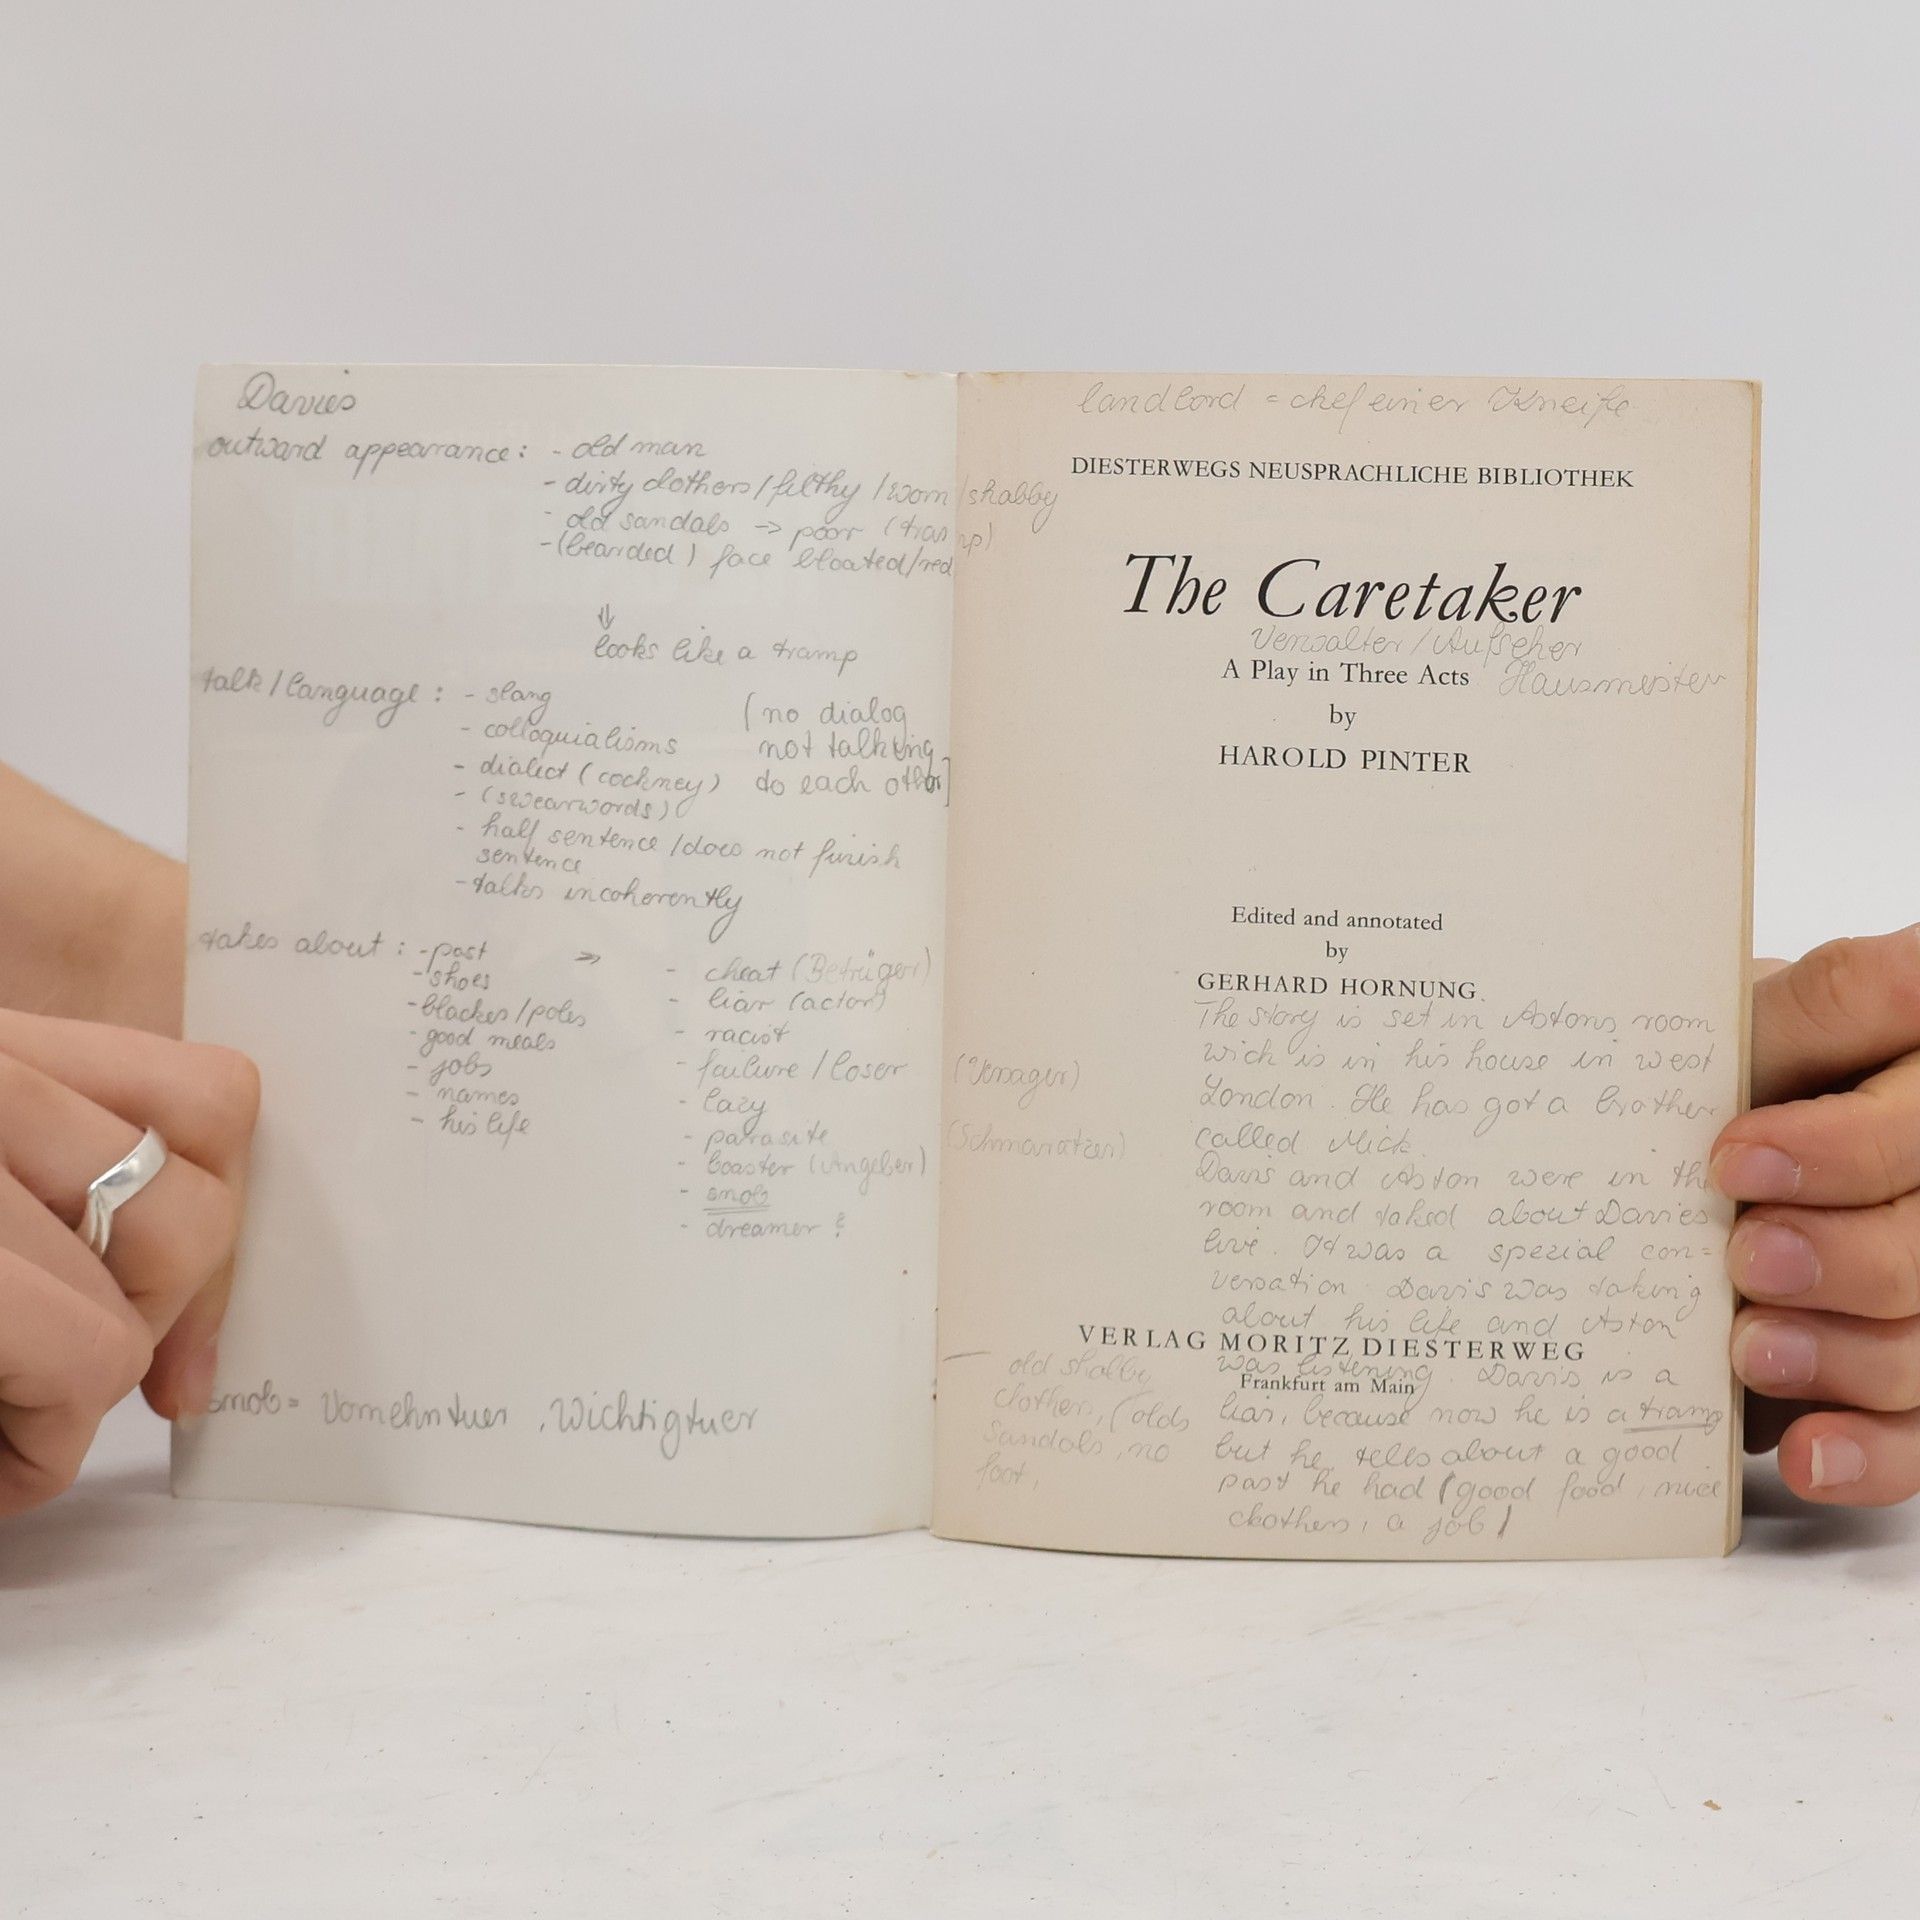 Davies
outward appearance: - old man
- dirty clothers / filthy / worn / shabby
- old sandals -> poor (tramp)
- (bearded) face bloated/red
⇓
looks like a tramp
talk / language: - slang
- colloquialisms
- dialect (cockney)
- (swearwords)
- half sentence / does not finish
sentence
- talks incoherently
[no dialog
not talking
to each other]
takes about: - past
- shoes
- blackes / poles
- good meals
- jobs
- names
- his life
=> - cheat (Betrüger)
- liar (actor)
- racist
- failure / loser (Versager)
- lazy
- parasite (Schmarotzer)
- boaster (Angeber)
- snob
- dreamer ?
snob = Vornehmtuer, Wichtigtuer
landlord = chef einer Kneipe
DIESTERWEGS NEUSPRACHLICHE BIBLIOTHEK
The Caretaker
Verwalter / Aufseher
A Play in Three Acts Hausmeister
by
HAROLD PINTER
Edited and annotated
by
GERHARD HORNUNG
The story is set in Astons room
wich is in his house in west
London. He has got a brother
called Mick.
Davis and Aston were in the
room and taked about Davies
live. It was a spezial con=
versation. Davis was taking
about his life and Aston
VERLAG MORITZ DIESTERWEG
was listening. Davis is a
Frankfurt am Main
liar, because now he is a tramp
but he tells about a good
past he had (good food, nice
clothers, a job)
old shabby
clothers, (olds
Sandals, no